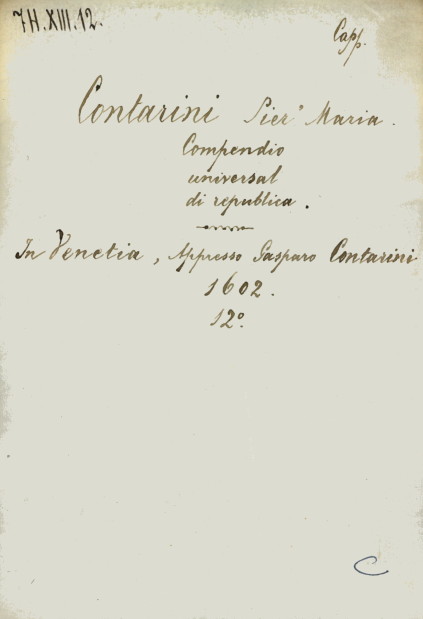 7H.XIII.12.
Capp.
Contarini Pier' Maria.
Compendio
universal
di republica.
In Venetia, Appresso Gasparo Contarini
1602.
12º.
C